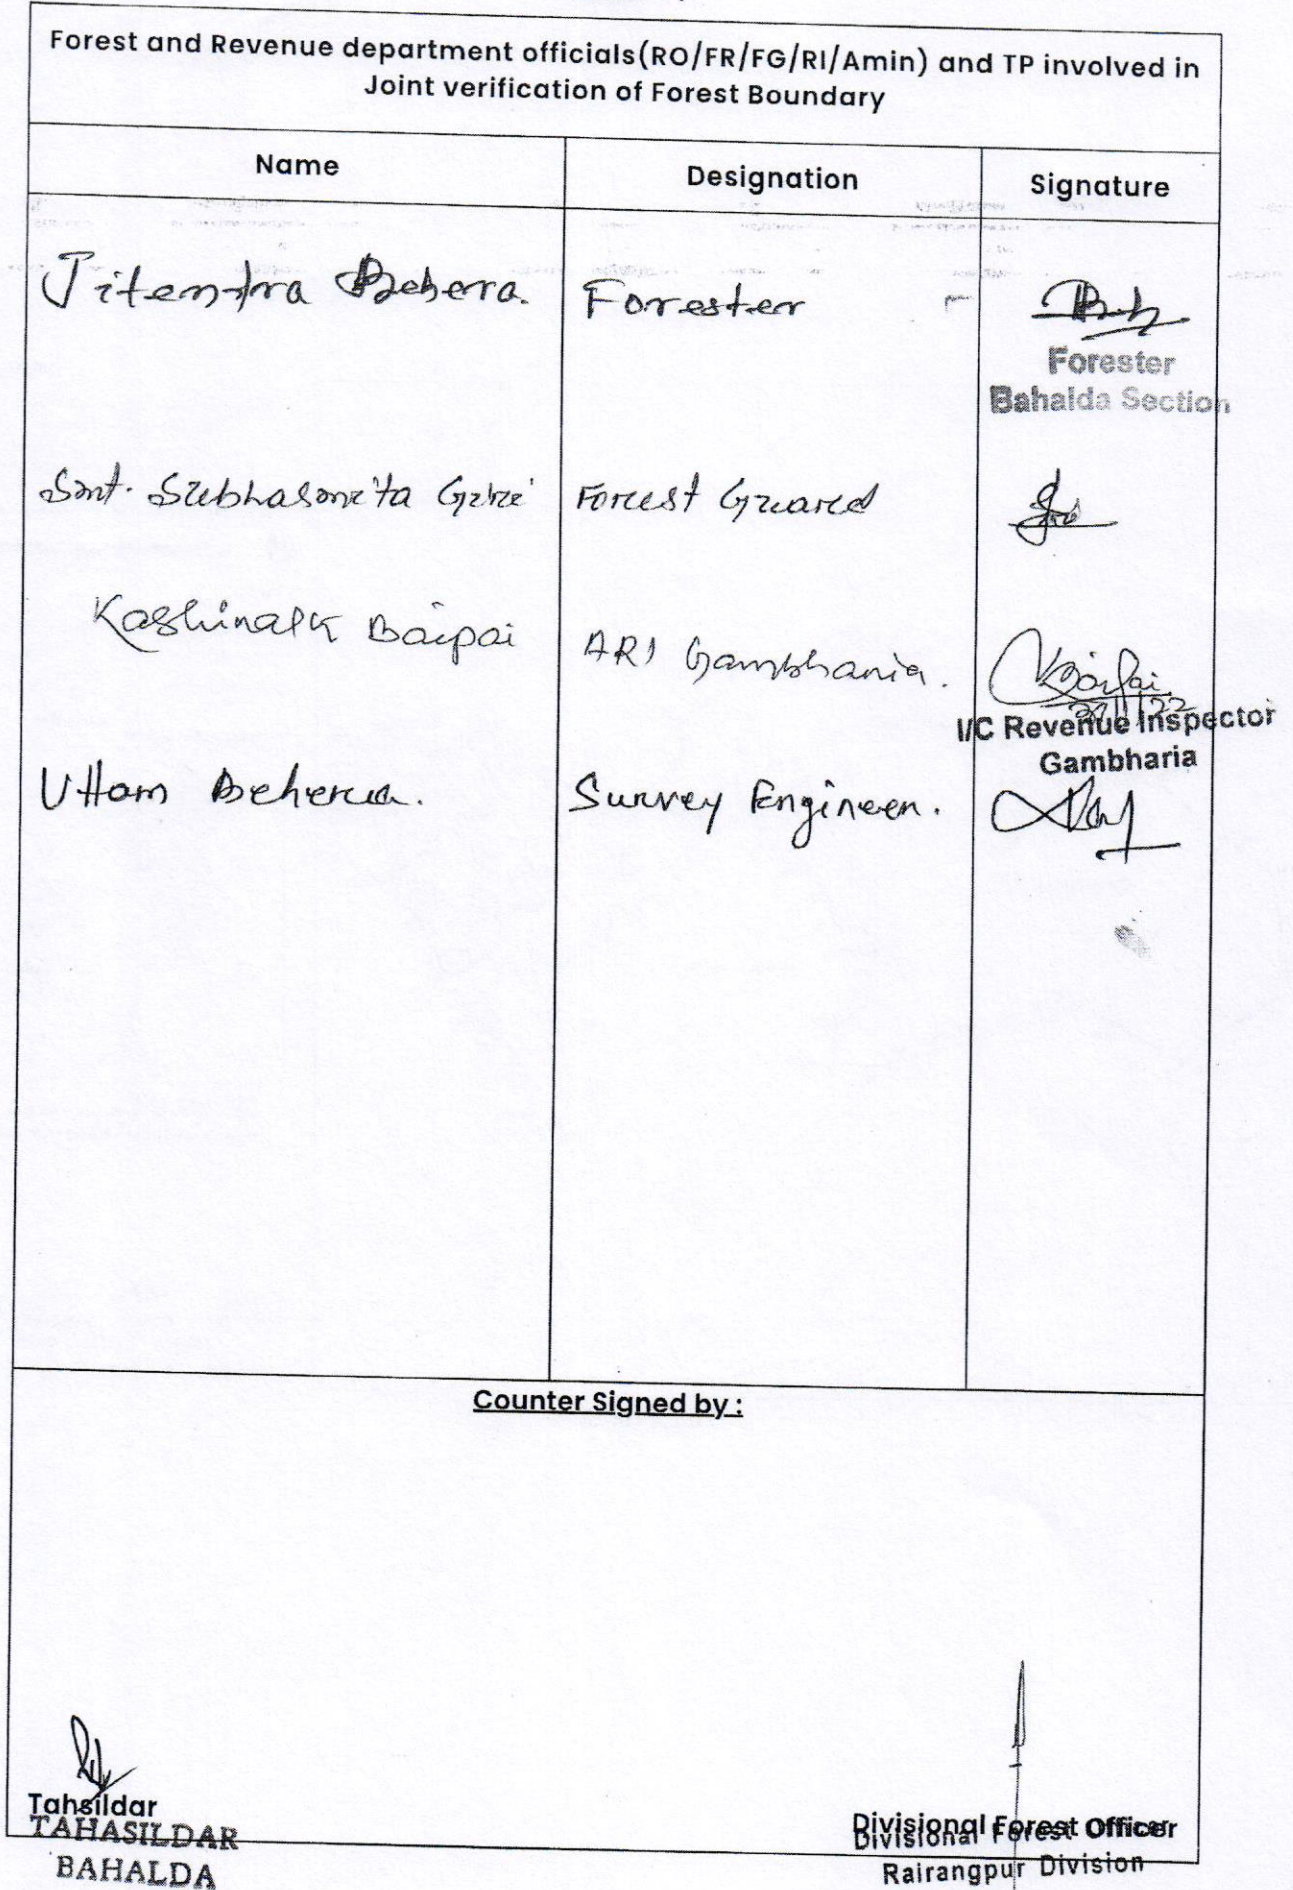 Forest and Revenue department officials(RO/FR/FG/RI/Amin) and TP involved in
Joint verification of Forest Boundary
Name Designation Signature
Jitendra Behera. Forester
Forester
Bahalda Section
Smt. Subhasmita Giri Forest Guard
Kashinath Baipai ARI Gambharia.
27/1/22
I/C Revenue Inspector
Gambharia
Uttam Behera. Survey Engineer.
Counter Signed by :
Tahsildar
TAHASILDAR
BAHALDA
Divisional Forest Officer
Divisional Forest Officer
Rairangpur Division